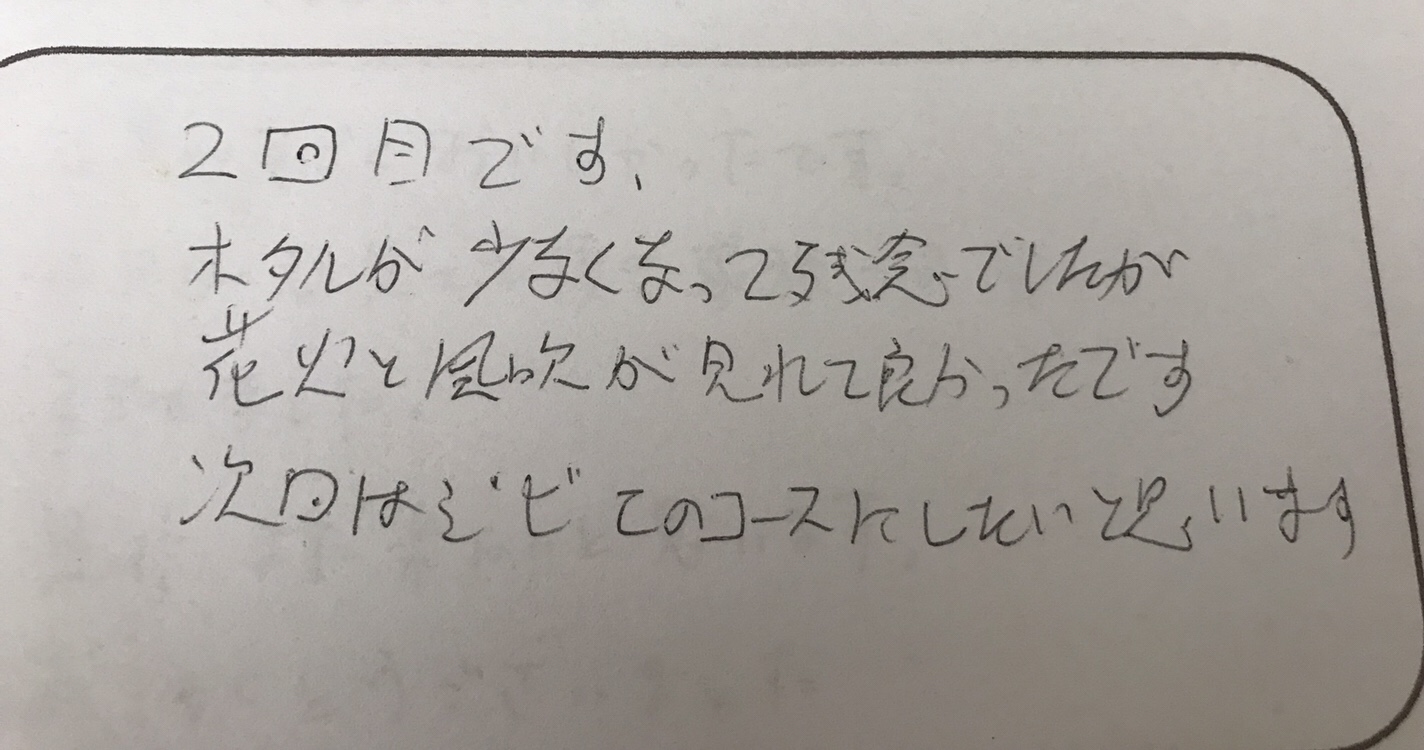 2回目です、
ホタルが少なくなって残念でしたが
花火と風吹が見れて良かったです
次回はぜヒこのコースにしたいと思います